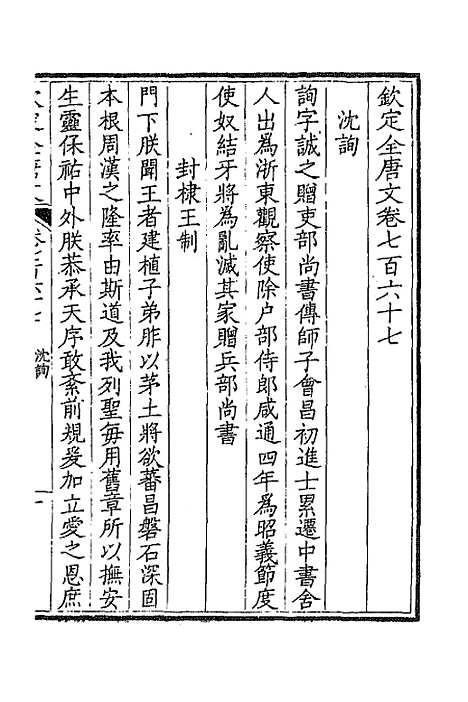 欽定全唐文卷七百六十七
沈詢
詢字誠之贈吏部尚書傳師子會昌初進士累遷中書舍
人出為浙東觀察使除户部侍郎咸通四年為昭義節度
使奴結牙將為亂滅其家贈兵部尚書
封棣王制
門下朕聞王者建植子弟胙以茅土將欲蕃昌磐石深固
本根周漢之隆率由斯道及我列聖每用舊章所以撫安
生靈保祐中外朕恭承天序敢紊前規爰加立愛之恩庶
沈詢
一